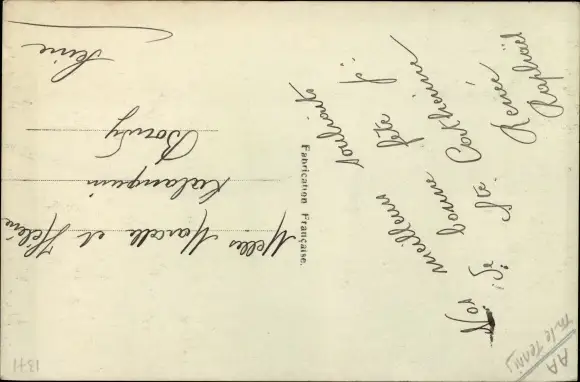 Nos meilleurs souhaits
de bonne fête p.
Ste Catherine
Renée
Raphaël
Fabrication Française.
Melles Marcelle et Hélène
Bondy
Seine
AA
1341